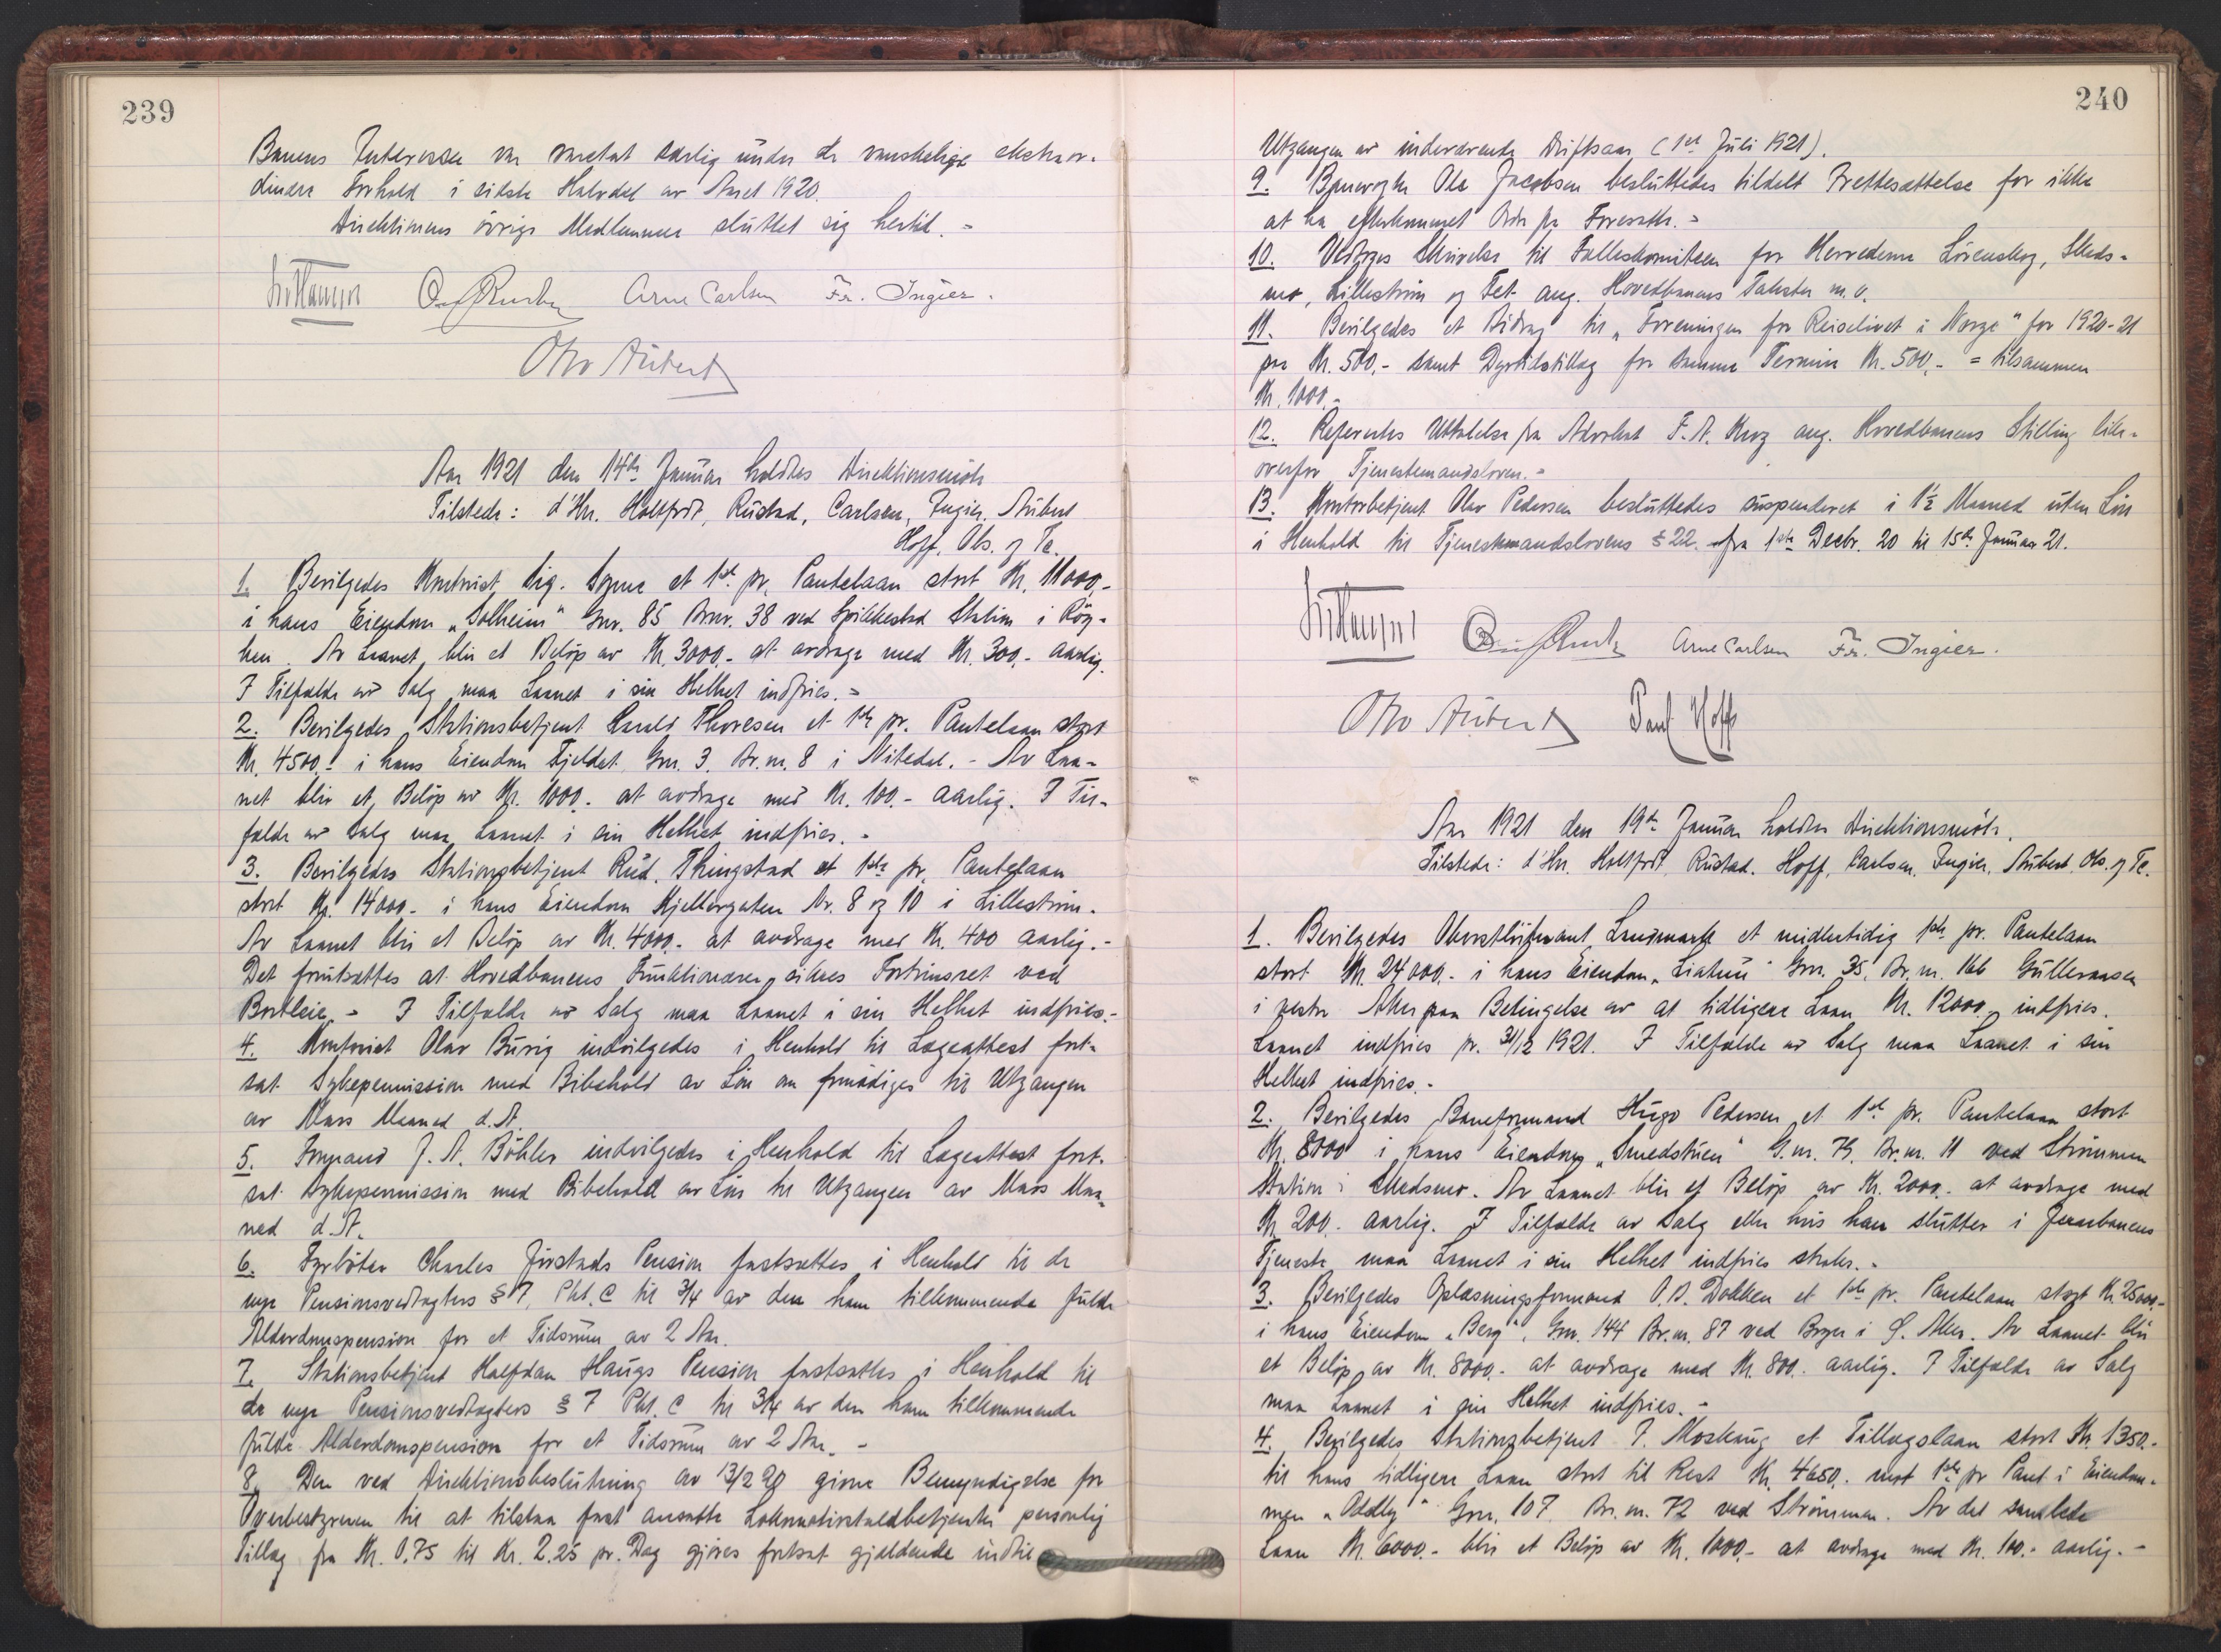 239
Banens Interesser var varetat særlig under de vanskelige ekstraor-
dinære Forhold i sidste Halvdel av Aaret 1920.
Direktionens övrige Medlemmer sluttet sig hertil. -
Arne Carlsen Fr. Ingier.
Otto Aubert
Aar 1921 den 14de Januar holdtes Direktionsmöte
Tilstede: d'Hrr. Holtfodt, Rustad, Carlsen, Ingier, Aubert
Hoff, Obs. og Te.
1. Bevilgedes Kontorist Sig. Sogne et 1ste pr. Pantelaan stort Kr. 11000,-
i hans Eiendom „Solheim" Gnr. 85 Brnr. 38 ved Spikkestad Station i Röy-
ken. Av Laanet blir et Belöp av Kr. 3000,- at avdrage med Kr. 300,- aarlig.
I Tilfælde av Salg maa Laanet i sin Helhet indfries. -
2. Bevilgedes Stationsbetjent Harald Thoresen et 1ste pr. Pantelaan stort
Kr. 4500,- i hans Eiendom Fjeldet Gnr. 3. Br.nr. 8 i Nitedal. - Av Laa-
net blir et Belöp av Kr. 1000.- at avdrage med Kr. 100.- aarlig. I Til-
fælde av Salg maa Laanet i sin Helhet indfries. -
3. Bevilgedes Stationsbetjent Rud. Thingstad et 1ste pr. Pantelaan
stort Kr. 14000.- i hans Eiendom Kjellergaten Nr. 8 og 10 i Lilleström.
Av Laanet blir et Belöp av Kr. 4000.- at avdrage med Kr. 400 aarlig. -
Det forutsættes at Hovedbanens Funktionærer sikres Fortrinsret ved
Bortleie. - I Tilfælde av Salg maa Laanet i sin Helhet indfries.-
4. Kontorist Olav Burig indvilgedes i Henhold til Lægeattest fort-
sat Sykepermission med Bibehold av Lön om fornödiges til Utgangen
av Mars Maaned d.A.
5. Formand J. A. Böhler indvilgedes i Henhold til Lægeattest fort-
sat Sykepermission med Bibehold av Lön til Utgangen av Mars Maa-
ned d.A.
6. Fyrböter Charles Jirstads Pension fastsættes i Henhold til de
nye Pensionsvedtægters § 7, Pkt. C til 3/4 av den ham tilkommende fulde
Alderdomspension for et Tidsrum av 2 Aar.
7. Stationsbetjent Halfdan Haugs Pension fastsættes i Henhold til
de nye Pensionsvedtægters § 7 Pkt. C til 3/4 av den ham tilkommende
fulde Alderdomspension for et Tidsrum av 2 Aar. -
8. Den ved Direktionsbeslutning av 13/2 20 givne Bemyndigelse for
Overbestyreren til at tilstaa fast ansatte Lokomotivstaldbetjenter personlig
Tillæg fra Kr. 0,75 til Kr. 2,25 pr. Dag gjöres fortsat gjældende indtil
240
Utgangen av indeværende Driftsaar (1ste Juli 1921).
9. Banevogter Ole Jacobsen besluttedes tildelt Irettesættelse for ikke
at ha efterkommet Ordre fra Foresatte. -
10. Vedtoges Skrivelse til Felleskomiteen for Herrederne Lörenskog, Skeds-
mo, Lilleström og Fet ang. Hovedbanens Takster m.v.
11. Bevilgedes et Bidrag til „Foreningen for Reiselivet i Norge" for 1920-21
paa Kr. 500,- samt Dyrtidstillæg for samme Termin Kr. 500,- = tilsammen
Kr. 1000.-
12. Refereres Uttalelse fra Advokat F. A. Krog ang. Hovedbanens Stilling like-
overfor Tjenestemandsloven. -
13. Kontorbetjent Olav Pedersen besluttedes suspenderet i 1½ Maaned uten Lön
i Henhold til Tjenestemandslovens § 22. fra 1ste Decbr. 20 til 15de Januar 21.
Arne Carlsen Fr. Ingier.
Otto Aubert Paul Hoff
Aar 1921 den 19de Januar holdtes Direktionsmöte.
Tilstede: d'Hrr. Holtfodt, Rustad. Hoff, Carlsen, Ingier, Aubert, Obs. og Te.
1. Bevilgedes Oberstlöitnant Landmark et midlertidig 1ste pr. Pantelaan
stort Kr. 24000.- i hans Eiendom „Liatun" Gnr. 35. Br.nr. 166 Gulleraasen
i vestre Aker paa Betingelse av at tidligere Laan Kr. 12000,- indfries.
Laanet indfries pr. 31/12 1921. I Tilfælde av Salg maa Laanet i sin
Helhet indfries. -
2. Bevilgedes Baneformand Hugo Pedersen et 1ste pr. Pantelaan stort
Kr. 8000 i hans Eiendom „Smedstuen" G.nr. 75. Br.nr. 11 ved Strömmen
Station i Skedsmo. Av Laanet blir et Belöp av Kr. 2000.- at avdrage med
Kr. 200.- aarlig. I Tilfælde av Salg eller hvis han slutter i Jernbanens
Tjeneste maa Laanet i sin Helhet indfries straks. -
3. Bevilgedes Oplæsningsformand O. A. Dokken et 1ste pr. Pantelaan stort Kr. 25000,-
i hans Eiendom „Berg", Gnr. 144 Br.nr. 87 ved Bryn i Ö. Aker. Av Laanet blir
et Belöp av Kr. 8000.- at avdrage med Kr. 800.- aarlig. I Tilfælde av Salg
maa Laanet i sin Helhet indfries. -
4. Bevilgedes Stationsbetjent I. Moshaug et Tillægslaan stort Kr. 1350.-
til hans tidligere Laan stort til Rest Kr. 4650.- mot 1ste pr Pant i Eiendom-
men „Oddly" Gnr. 107. Br.nr. 72 ved Strömmen. Av det samlede
Laan Kr. 6000.- blir et Belöp av Kr. 1000,- at avdrage med Kr. 100.- aarlig. -